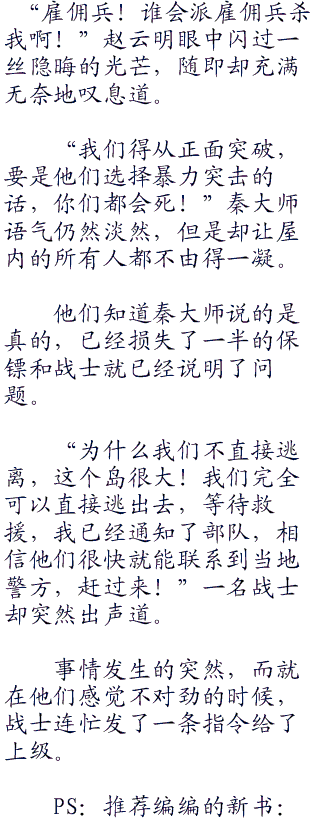 “雇佣兵！谁会派雇佣兵杀
我啊！”赵云明眼中闪过一
丝隐晦的光芒，随即却充满
无奈地叹息道。
“我们得从正面突破，
要是他们选择暴力突击的
话，你们都会死！”秦大师
语气仍然淡然，但是却让屋
内的所有人都不由得一凝。
他们知道秦大师说的是
真的，已经损失了一半的保
镖和战士就已经说明了问
题。
“为什么我们不直接逃
离，这个岛很大！我们完全
可以直接逃出去，等待救
援，我已经通知了部队，相
信他们很快就能联系到当地
警方，赶过来！”一名战士
却突然出声道。
事情发生的突然，而就
在他们感觉不对劲的时候，
战士连忙发了一条指令给了
上级。
PS：推荐编编的新书：